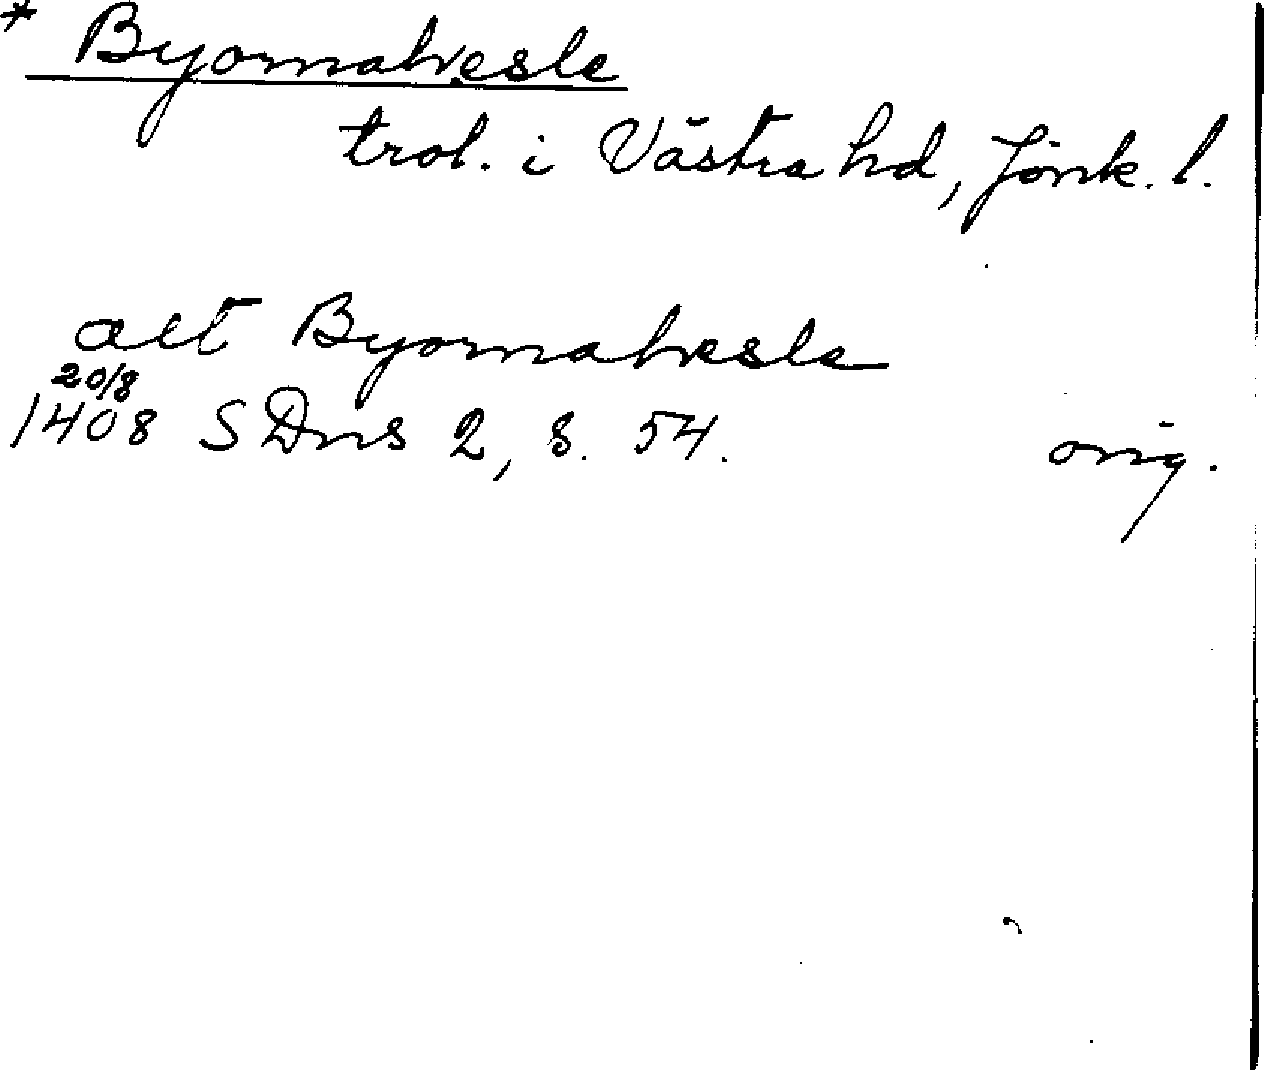 * Byornahvesle
trol. i Västra hd, Jönk. l.
alt Byornahvesle
20/8
1408 SDns 2, s. 54. orig.